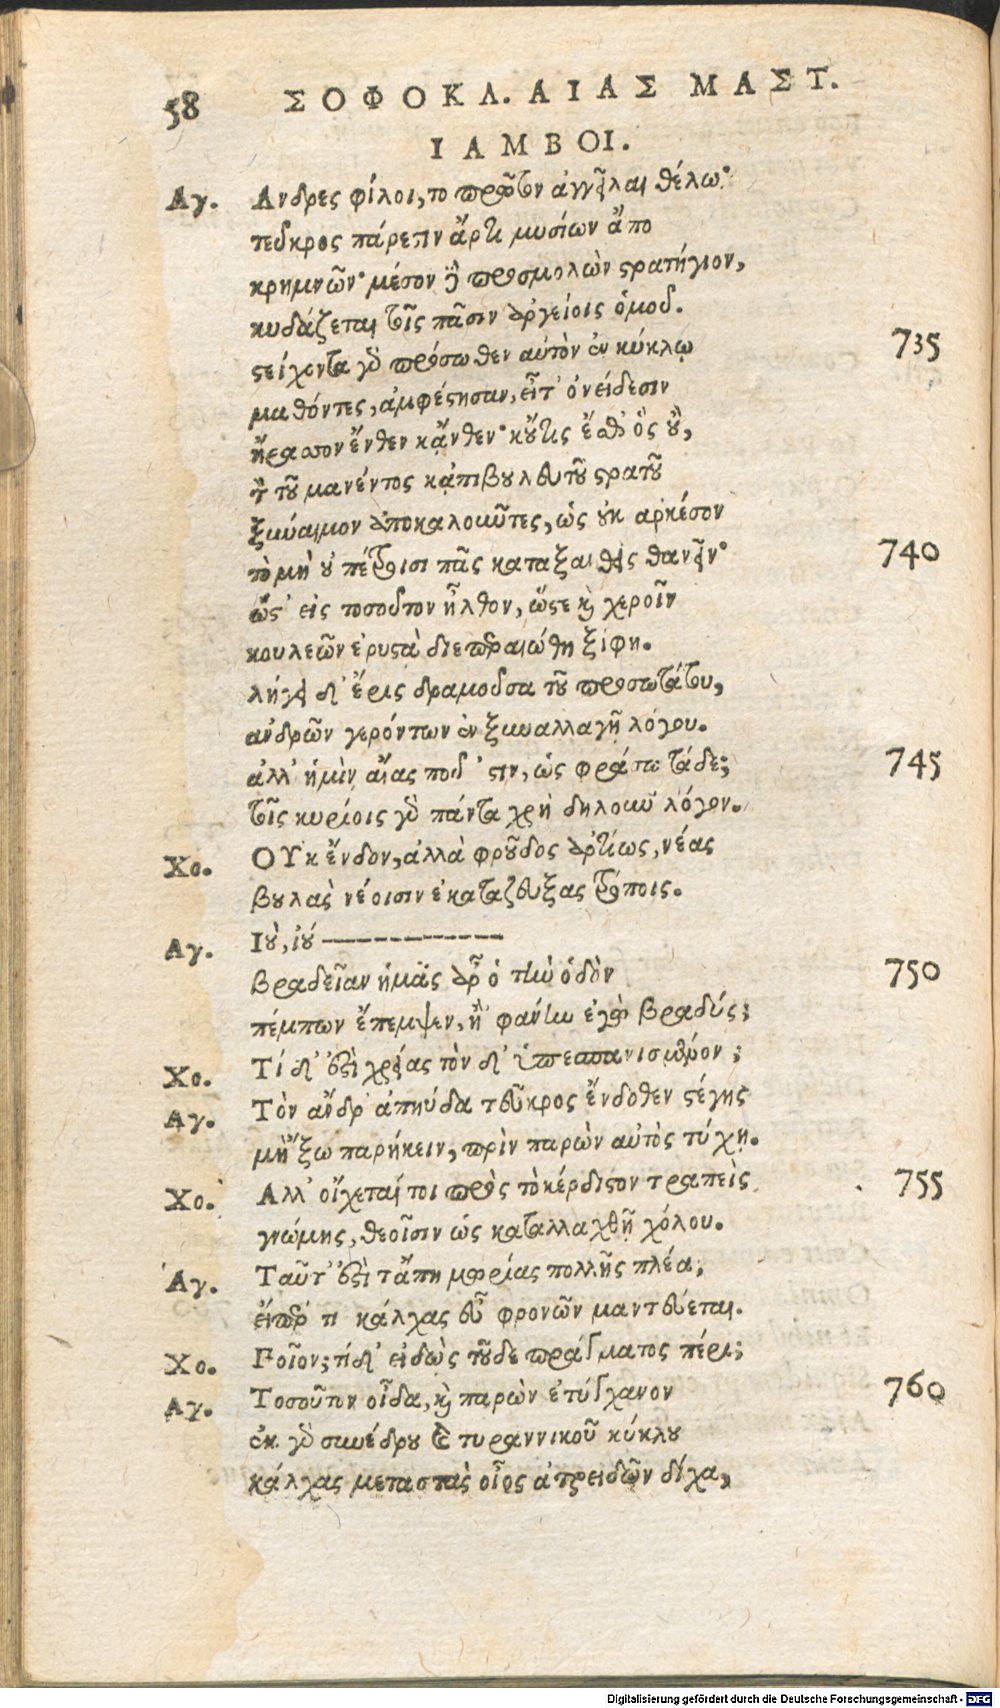 58 ΣΟΦΟΚΛ. ΑΙΑΣ ΜΑΣΤ.
ΙΑΜΒΟΙ.
Αγ. Ανδρες φίλοι, το πρῶτον ἀγγεῖλαι θέλω·
τεῦκρος πάρεστιν ἄρτι μυσίων ἄπο
κρημνῶν· μέσον δὲ προσμολὼν στρατήγιον,
κυδάζεται τοῖς πᾶσιν ἀργείοις ὁμοῦ.
στείχοντα γὸ πρόσωθεν αὐτὸν ἐν κύκλῳ 735
μαθόντες, ἀμφέστησαν, εἶτ' ὀνείδεσιν
ἤρασσον ἔνθεν κᾄνθεν· κοὔτις ἔσθ' ὃς οὒ,
τ τοῦ μανέντος κᾀπιβουλευτοῦ στρατοῦ
ξυναιμον ἀποκαλοῦντες, ὡς οὐκ αρκέσοι
τὸ μὴ οὐ πέτροισι πᾶς καταξανθεὶς θανεῖν· 740
ὥστ' εἰς τοσοῦτον ἦλθον, ὥστε καὶ χεροῖν
κουλεῶν ἐρυστὰ διεπεραιώθη ξίφη.
λήγει δ' ἔρις δραμοῦσα τοῦ προσωτάτου,
ανδρῶν γερόντων ἐν ξυναλλαγῇ λόγου.
ἀλλ' ἡμὶν αἴας ποῦ 'στιν, ὡς φράσω τάδε; 745
τοῖς κυρίοις γὸ πάντα χρὴ δηλοῦν λόγον.
Χο. ΟΥκ ἔνδον, ἀλλὰ φροῦδος ἀρτίως, νέας
βουλας νέοισιν ἐκαταζεύξας τρόποις.
Αγ. Ιοὺ, ἰού ------------
βραδεῖαν ἡμᾶς ἆρ' ὁ τὴν ὁδὸν 750
πέμπων ἔπεμψεν, ἢ 'φανην ἐγὼ βραδύς;
Χο. Τί δ' ἐστὶ χρείας τὸν δ' ὑπεσπανισμένον;
Αγ. Τὸν ανδρ' ἀπηύδα τεῦκρος ἔνδοθεν στέγης
μὴ ἔξω παρήκειν, πρὶν παρὼν αὐτὸς τύχῃ.
Χο. Αλλ' οἴχεταί τοι πρὸς τὸ κέρδιστον τραπεὶς 755
γνώμης, θεοῖσιν ὡς καταλλαχθῇ χόλου.
Αγ. Ταῦτ' ἐστὶ τἄπη μωρίας πολλῆς πλέα,
εἴπερ τι κάλχας εὖ φρονῶν μαντεύεται.
Χο. Ποῖον; τί δ' εἰδὼς τοῦδε πράγματος πέρι;
Αγ. Τοσοῦτον οἶδα, καὶ παρὼν ἐτύγχανον 760
ἐκ γὸ συνέδρου καὶ τυραννικοῦ κύκλου
κάλχας μεταστὰς οἶος ἀτρειδῶν δίχα,
Digitalisierung gefördert durch die Deutsche Forschungsgemeinschaft - DFG